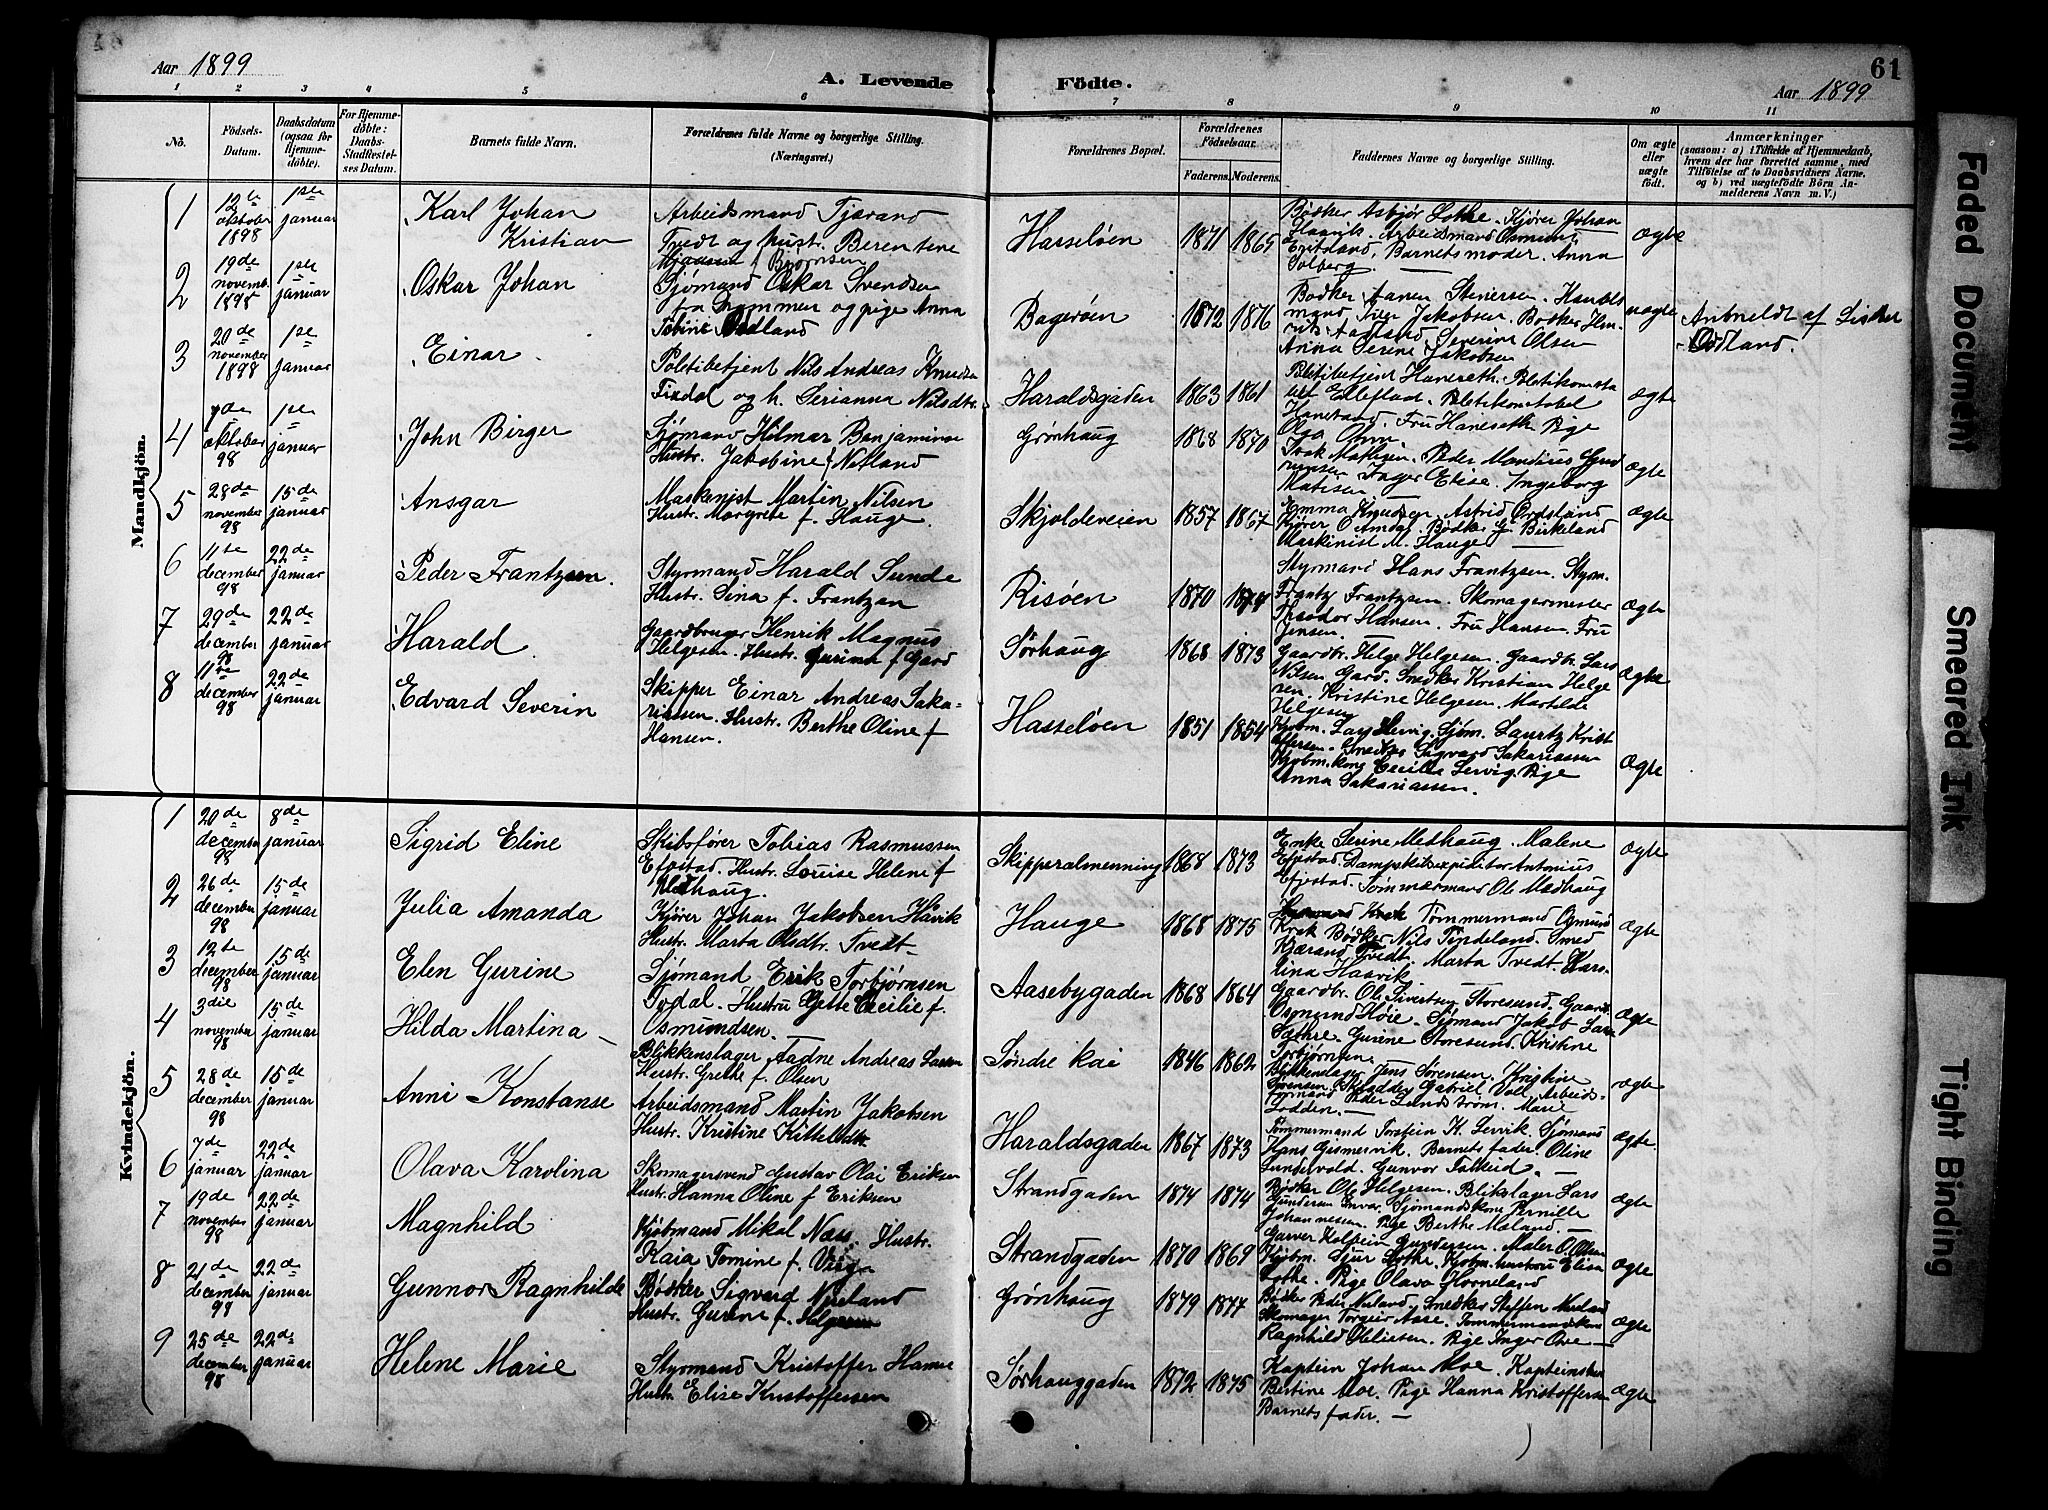 Aar 1899
A. Levende Födte.
Aar 1899
61
1 2 3 4 5 6 7 8 9 10 11
No.
Födsels-Datum.
Daabsdatum (ogsaa for Hjemme-döbte).
For Hjemme-döbte: Daabs-Stadfæstel-ses Datum.
Barnets fulde Navn.
Forældrenes fulde Navne og borgerlige Stilling. (Næringsvei.)
Forældrenes Bopæl.
Forældrenes Födselsaar.
Faderens. Moderens.
Faddernes Navne og borgerlige Stilling.
Om ægte eller uægte födt.
Anmærkninger
(saasom: a) i Tilfælde af Hjemmedaab, hvem der har forrettet samme, med Tilföielse af to Daabsvidners Navne, og b) ved uægtefödte Börn An-melderens Navn m. V.)
Mandkjön.
1 12te oktober 1898 1ste januar Karl Johan Kristian
Arbeidsmand Tjærand Tvedt og hustr. Berentene f Bjørnsen
Hasseløen 1871 1865
Bødker Asbjør Lothe. Kjører Johan Haavik. Arbeidsmand Osmund Barnets moder. Anna Solberg.
ægte
2 19de novemb. 1898 1ste januar Oskar Johan
Sjømand Oskar Svendsen fra Drammen og pige Anna Tobine Østland
Bagerøen 1872 1876
Bødker Aanen Stenersen. Iver Jakobsen. Bødker Severine Olsen Anna Serine Jakobsen
uægte
Østland.
3 20de november 1898 1ste januar Einar
Politibetjent Nils Andreas Knudsen og h. Serianna Nilsdtr.
Haraldsgaden 1863 1861
Politibetjent Haneseth. Fru Haneseth. Pige Olga
ægte
4 7de oktober 98 1ste januar John Birger
Sjømand Hilmar Benjaminse Hustr. Jakobine f Netland
Grønhaug 1868 1870
Isak Mathisen. Peder Mandius Inger Elise. Ingeborg Matisen
ægte
5 28de november 98 15de januar Ansgar
Maskinist Martin Nilsen Hustr. Margrete f. Hauge.
Skjoldeveien 1857 1867
Emma Knudsen. Astrid Kjører O Amdal. Bødker G. Birkeland Maskinist M. Hauge
ægte
6 11te december 98 22de januar Peder Frantzsen.
Styrmand Harald Sunde Hustr. Sina f. Frantzen
Risøen 1870 1874
Styrmand Hans Frantzsen. Styrm. Frantz Frantzsen. Skomagermester Theodor Hansen. Fru Hansen. Fru Jensen.
ægte
7 29de december 98 22de januar Harald
Gaardbruger Henrik Magnus Helgesen. Hustr. Gurina f Gard
Sørhaug 1868 1873
Gaardbr. Helge Helgesen. Gaardbr. Lars Nilsen Gard. Smed Kristian Helgesen. Kristine Helgesen. Martilde Helgesen
ægte
8 11te december 98 22de januar Edvard Severin
Skipper Einar Andreas Sakariassen. Hustr. Berthe Oline f Hansen.
Hasseløen 1851 1854
Kjøbm. Lars Lervig. Sjøm. Lauritz Kristoffersen. Sigvard Sakariassen Kjøbm.kone Cecilia Lervig. Pige Anna Sakariassen.
ægte
Kvindekjön.
1 20de december 98 8de januar Sigrid Eline
Skibsfører Tobias Rasmussen Efjestad. Hustr. Louise Helene f Medhaug.
Skipperalmenning 1868 1873
Enke Serine Medhaug. Malene Efjestad. Dampskibsexpeditør Antonius Efjestad. Tømmermand Ol. Medhaug
ægte
2 26de december 98 15de januar Julia Amanda
Kjører Johan Jakobsen Håvik Hustr. Marta Olsdtr. Tvedt
Hauge 1868 1875
Tømmermand Osmund Krak Bødker Nils Tindeland. Smed Kjærand Tvedt. Marta Tvedt. Karolina Haavik
ægte
3 12te december 98 15de januar Elen Gurine
Sjømand Erik Torbjørnsen Tysdal. Hustru Gitte Cecilie f. Osmundsen.
Aasebygaden 1868 1864
Gaardbr. Ole Sivertsen Storesund. Gaardbr. Osmund Høie. Sjømand Jakob Gurine Storesund. Kristine Torbjørnsen
ægte
4 3die november 98 15de januar Hilda Martina
Blikkenslager Aadne Andreas Larsen Hustr. Grethe f. Olsen
Søndre kai 1846 1862
Blikkenslager Jens Sørensen. Kristine Sørensen. Gabriel Voll. Arbeidsmand Peder Lundstrøm. Marie Lodden.
ægte
5 28de december 98 15de januar Anni Konstanse
Arbeidsmand Martin Jakobsen Hustr. Kristine Kittelsdtr.
Haraldsgaden 1867 1873
Tømmermand Torstein K. Lervik. Sjømand Hans Gismervik. Barnets fader. Oline Sundevold. Gunvor Falkeid.
ægte
6 7de januar 22de januar Olava Karolina
Skomagersvend Gustav Olai Eriksen Hustr. Hanna Oline f Eriksen
Strandgaden 1874 1874
Bødker Ole Helgesen. Blikslager Lars Gundersen. Sjømandskone Pernille Johannessen. Pige Berthe Maland.
ægte
7 19de november 98 22de januar Magnhild
Kjøbmand Mikal Næss. Hustr. Kaia Tomine f.
Strandgaden 1870 1869
Garver Holstein Gundersen. Maler O. Olsen Kjøbm. Sjur Lothe. Kjøbm.hustru Elisa Lothe. Pige Olava Horneland
ægte
8 21de december 98 22de januar Gunnor Ragnhilde
Bødker Sigvard Nerland Hustr. Gurine f. Helgesen
Grønhaug 1879 1877
Bødker Peder Nerland. Smedker Steffen Nerland Skomager Torgeir Aase. Tømmermandskone Ragnhild Pige Inger Ove
ægte
9 25de december 98 22de januar Helene Marie
Styrmand Kristoffer Hanse Hustr. Elise Kristoffersen
Sørhauggaden 1872 1875
Kaptein Johan Moe. Kapteinsken Bertine Moe. Pige Hanna Kristoffersen Barnets fader.
ægte
Faded Document
Smeared Ink
Tight Binding